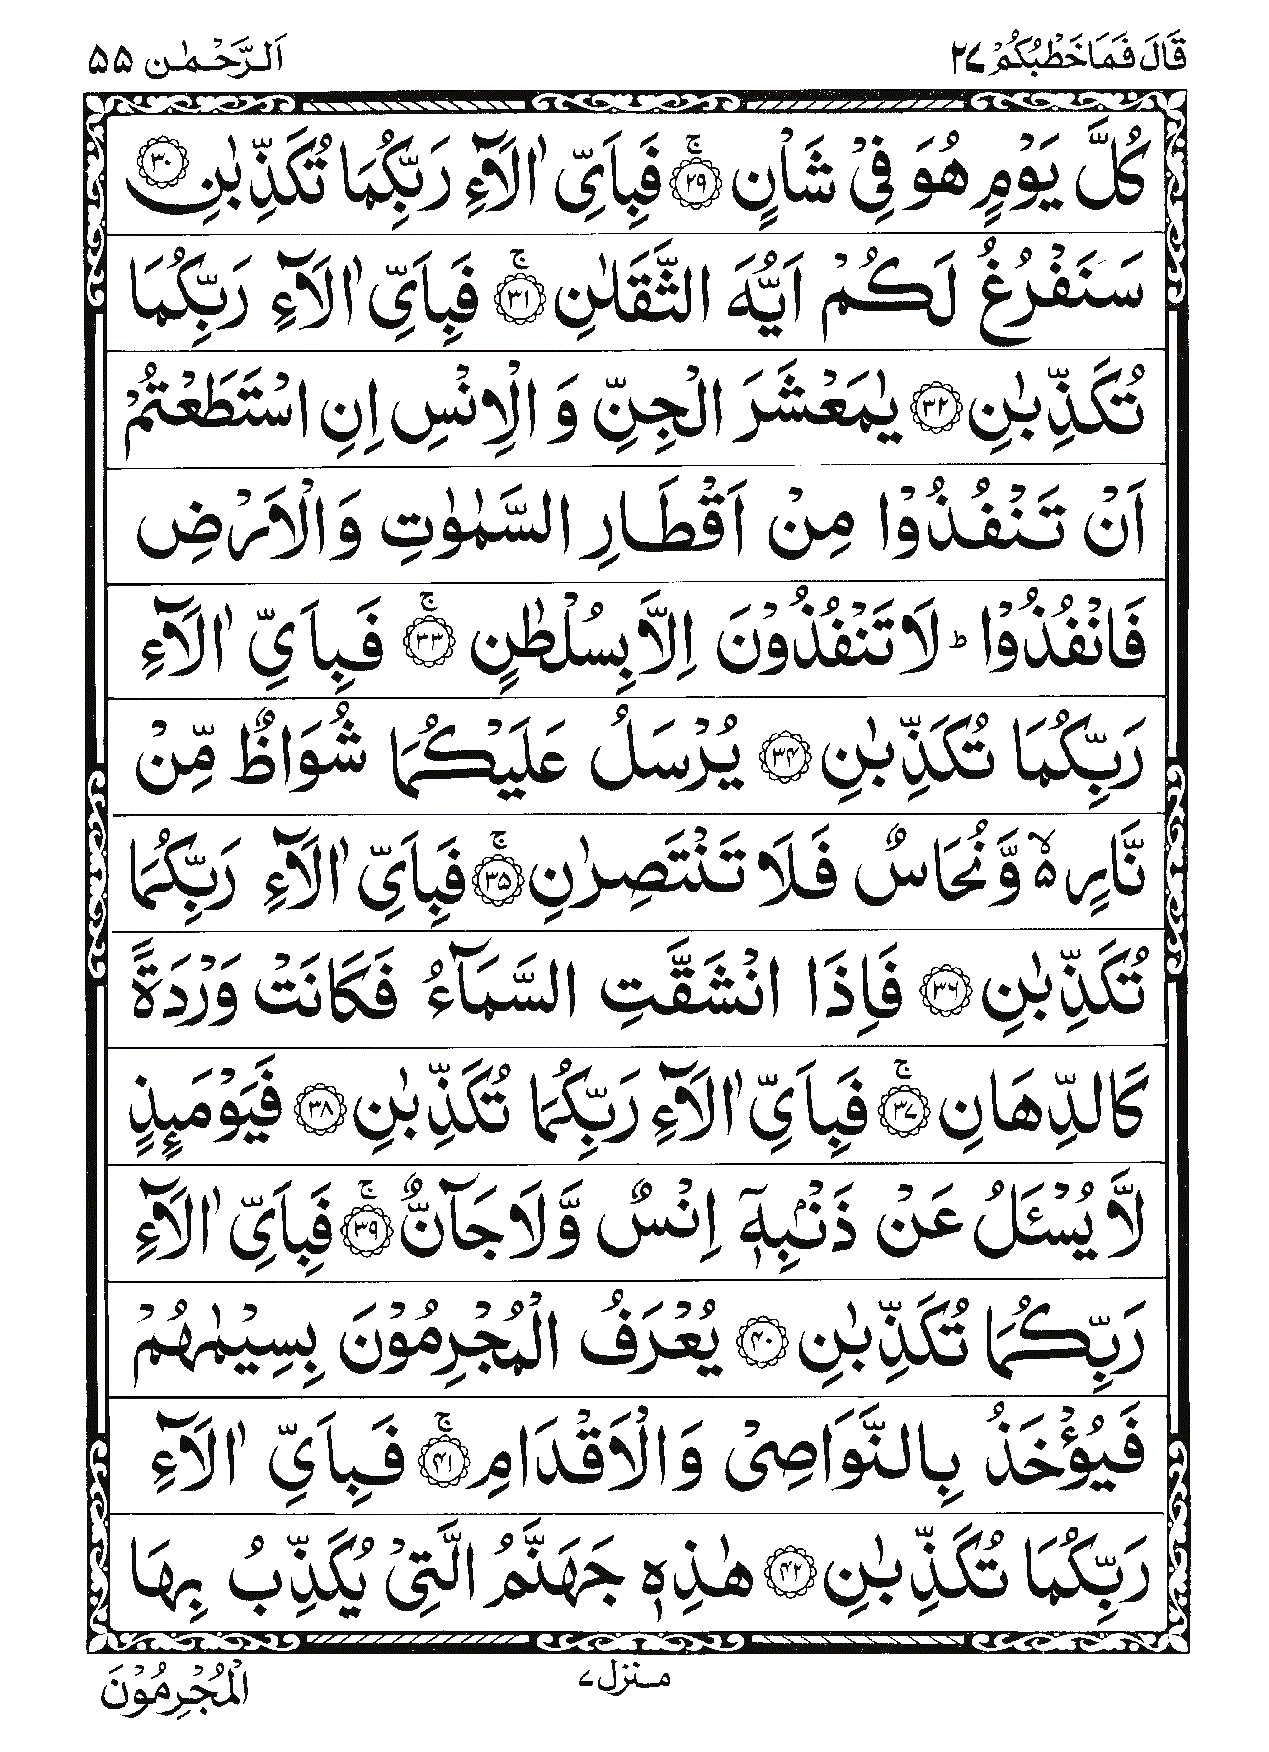 قَالَ فَمَا خَطْبُكُمْ ٢٧
اَلرَّحْمٰن ٥٥
كُلَّ يَوْمٍ هُوَ فِيْ شَاْنٍ ۚ‏﴿۲۹﴾ فَبِاَيِّ اٰلَآءِ رَبِّكُمَا تُكَذِّبٰنِ ﴿۳۰﴾
سَنَفْرُغُ لَكُمْ اَيُّهَ الثَّقَلٰنِ ۚ﴿۳۱﴾ فَبِاَيِّ اٰلَآءِ رَبِّكُمَا
تُكَذِّبٰنِ ﴿۳۲﴾ يٰمَعْشَرَ الْجِنِّ وَ الْاِنْسِ اِنِ اسْتَطَعْتُمْ
اَنْ تَنْفُذُوْا مِنْ اَقْطَارِ السَّمٰوٰتِ وَالْاَرْضِ
فَانْفُذُوْا ؕ لَا تَنْفُذُوْنَ اِلَّا بِسُلْطٰنٍ ۚ﴿۳۳﴾ فَبِاَيِّ اٰلَآءِ
رَبِّكُمَا تُكَذِّبٰنِ ﴿۳۴﴾ يُرْسَلُ عَلَيْكُمَا شُوَاظٌ مِّنْ
نَّارٍ ۙ۵ وَّنُحَاسٌ فَلَا تَنْتَصِرٰنِ ۚ﴿۳۵﴾ فَبِاَيِّ اٰلَآءِ رَبِّكُمَا
تُكَذِّبٰنِ ﴿۳۶﴾ فَاِذَا انْشَقَّتِ السَّمَآءُ فَكَانَتْ وَرْدَةً
كَالدِّهَانِ ۚ﴿۳۷﴾ فَبِاَيِّ اٰلَآءِ رَبِّكُمَا تُكَذِّبٰنِ ﴿۳۸﴾ فَيَوْمَىِٕذٍ
لَّا يُسْـَٔلُ عَنْ ذَنْۢبِهٖٓ اِنْسٌ وَّلَا جَآنٌّ ۚ﴿۳۹﴾ فَبِاَيِّ اٰلَآءِ
رَبِّكُمَا تُكَذِّبٰنِ ﴿۴۰﴾ يُعْرَفُ الْمُجْرِمُوْنَ بِسِيْمٰهُمْ
فَيُؤْخَذُ بِالنَّوَاصِيْ وَالْاَقْدَامِ ۚ﴿۴۱﴾ فَبِاَيِّ اٰلَآءِ
رَبِّكُمَا تُكَذِّبٰنِ ﴿۴۲﴾ هٰذِهٖ جَهَنَّمُ الَّتِيْ يُكَذِّبُ بِهَا
منزل ٧
الْمُجْرِمُوْنَ